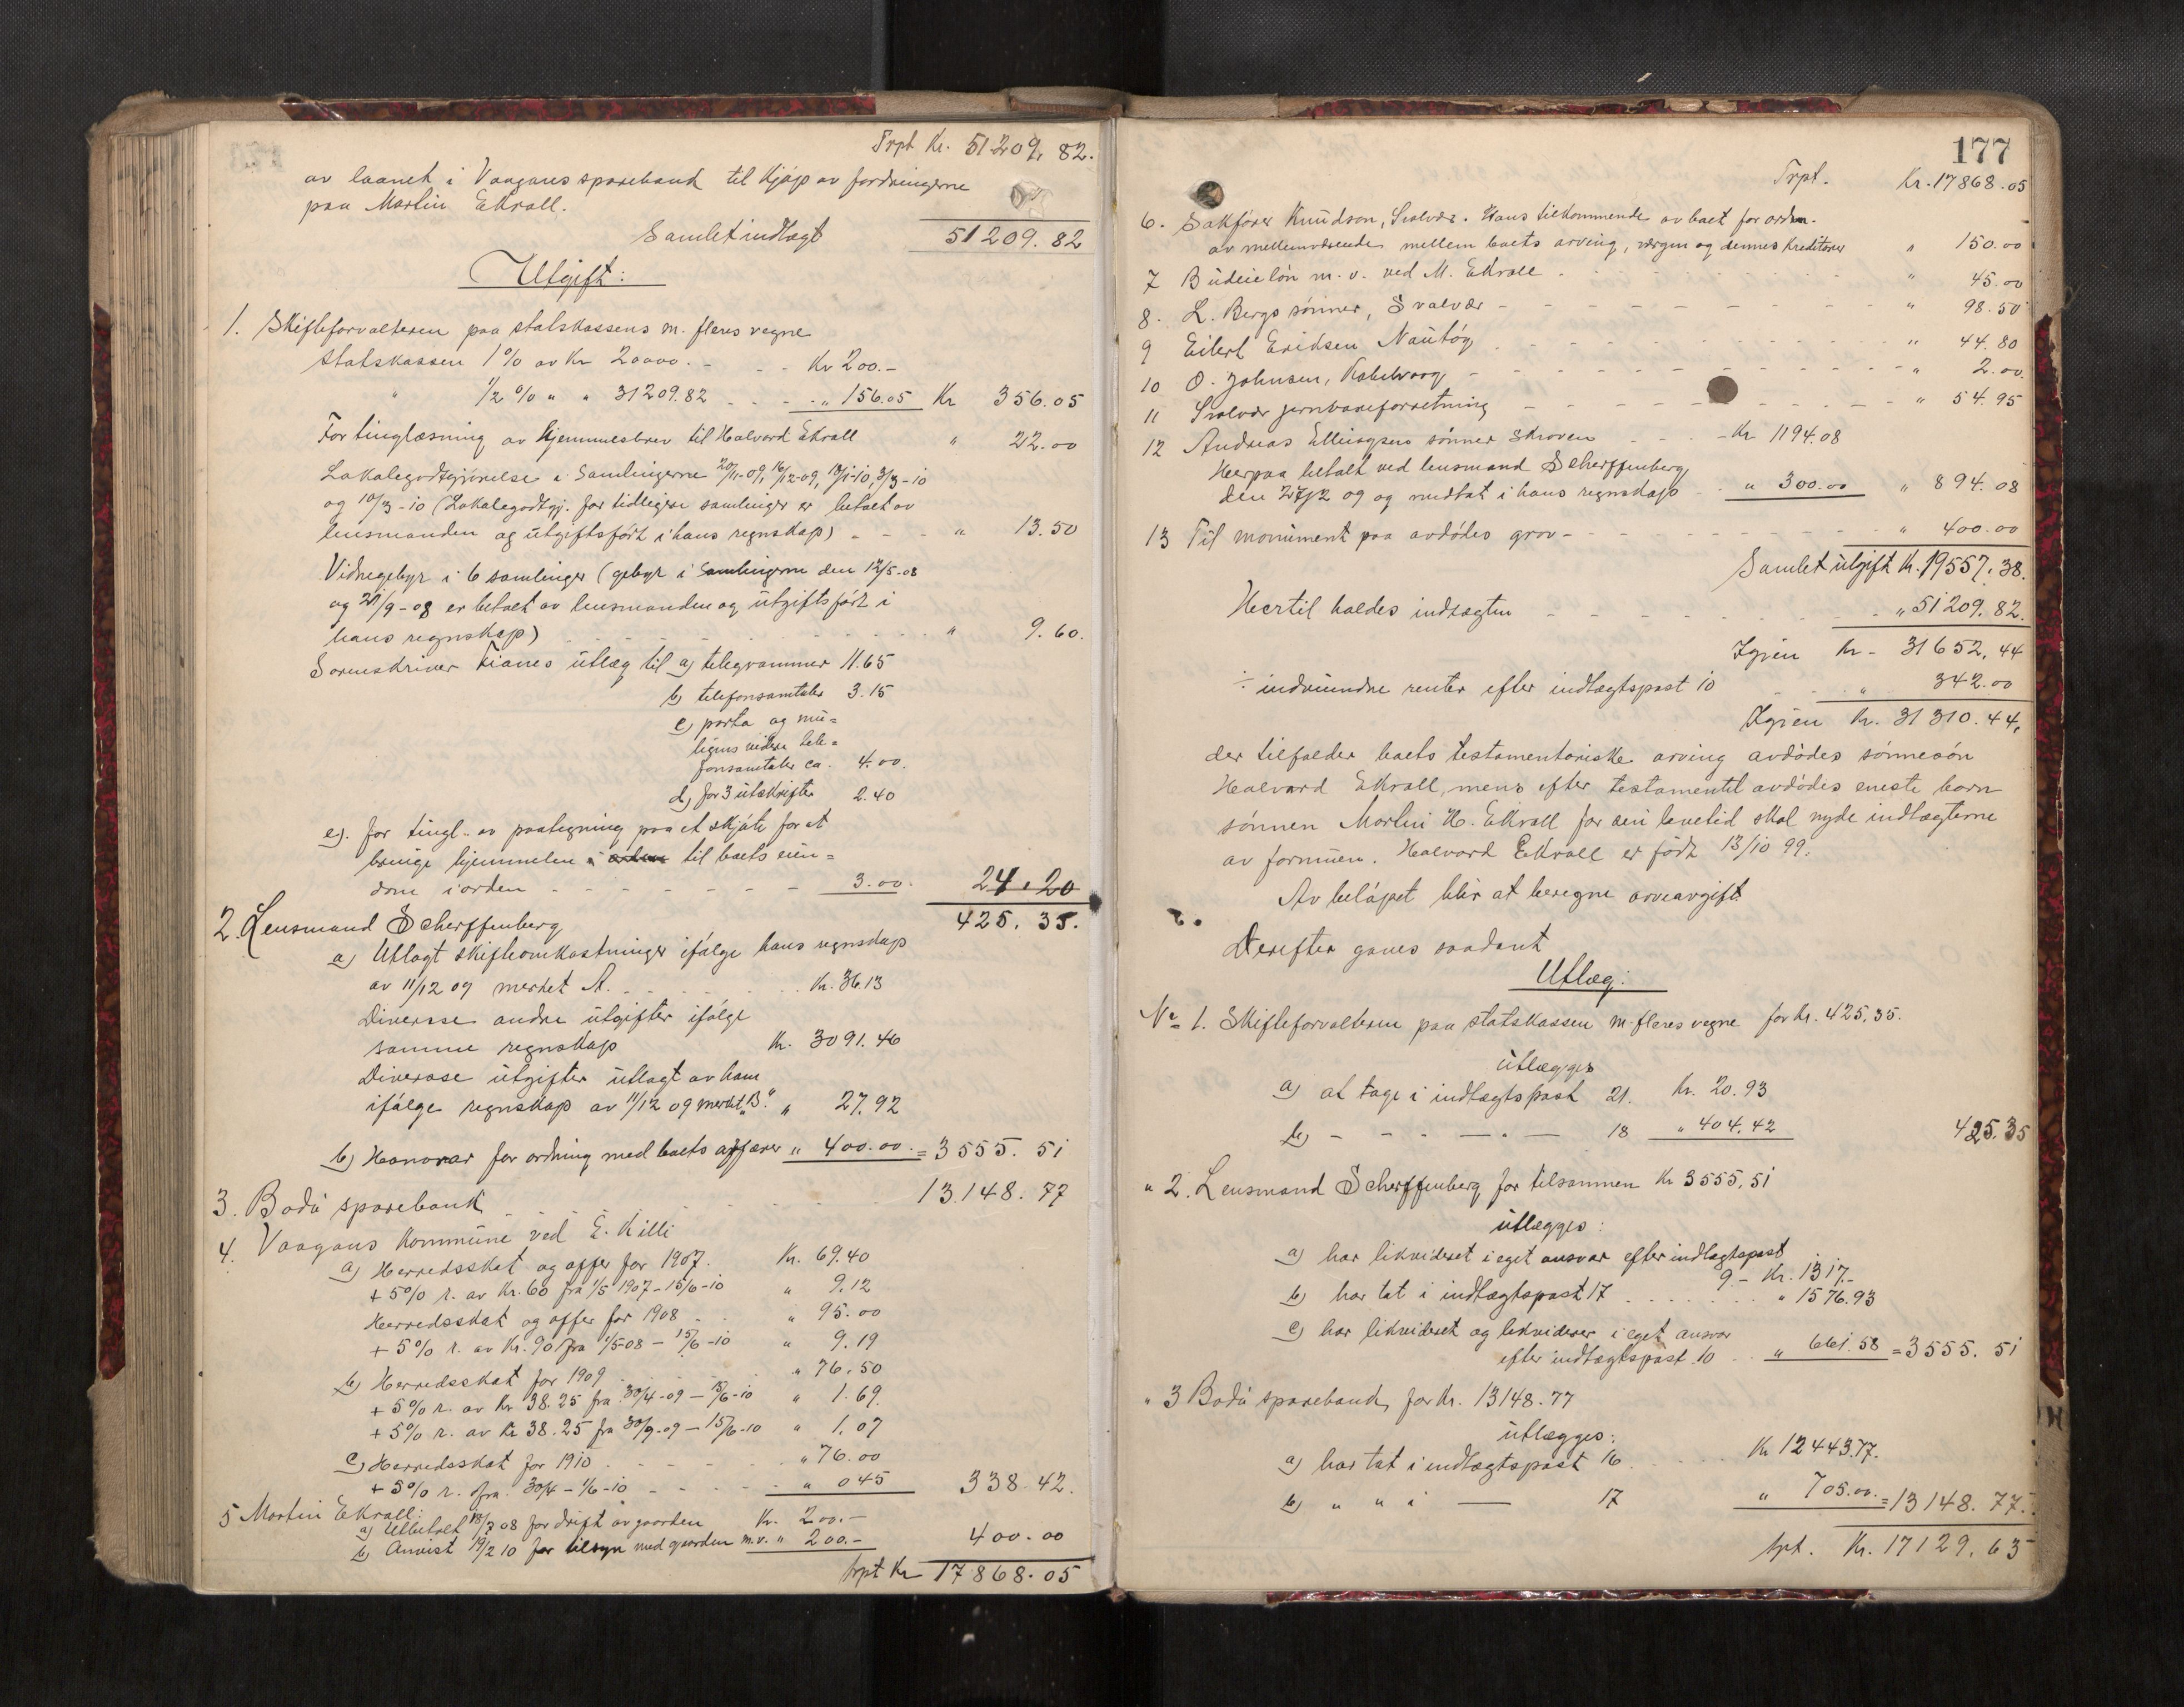 Trpt Kr. 51209.82.
av laanet i Vaagans sparebank til Kjøp av fordringerne
paa Martin Ekrall.
Samlet indtægt 51209.82
Utgift:
1. Skifteforvalteren paa statskassens m. fleres vegne
Statskassen 1% av Kr 20000. - - - Kr 200.-
" 1/2 % " " 31209.82 - - - " 156.05 Kr 356.05
For tinglæsning av hjemmelsbrev til Halvard Ekrall " 22.00
Lokalegodtgjørelse i Samlingerne 20/11-09, 16/12-09, 13/1-10, 3/3-10
og 10/3-10 (Lokalegodtgj. for tidligere samlinger er betalt av
lensmanden og utgiftsført i hans regnskap) - - - " 13.50
Vidnegebyr i 6 samlinger (gebyr i Samlingerne den 12/5-08
og 21/9-08 er betalt av lensmanden og utgiftsført i
hans regnskap) " 9.60.
Sorenskriver Fianes utlæg til a) telegrammer 11.65
b) telefonsamtaler 3.15
c) porto og mu=
ligens videre tele=
fonsamtaler ca. 4.00.
d) for 3 utskrifter 2.40
e). for tingl. av paategning paa et skjøte for at
bringe hjemmelen i til boets eien=
dom i orden - - - - - - - 3.00. 24.20
425.35.
2. Lensmand Scherffenberg
a) Utlagt skifteomkostninger ifølge hans regnskap
av 11/12 09 merket A. Kr. 36.13
Diverse andre utgifter ifølge
samme regnskap Kr. 3091.46
Diverse utgifter utlagt av ham
ifølge regnskap av 11/12 09 merket "B." " 27.92
b) Honorar for ordning med boets affærer " 400.00. = 3555.51
3. Bodø sparebank 13148.77
4. Vaagans Kommune ved E. Killi
a) Herredsskat og offer for 1907. Kr. 69.40
+ 5% r. av Kr. 60 fra 1/5 1907 - 15/6-10 " 9.12
Herredsskat og offer for 1908 " 95.00
+ 5% r. av Kr. 90 fra 1/5-08 - 15/6-10 " 9.19
b) Herredsskat for 1909 " 76.50
+ 5% r. av Kr 38.25 fra 30/4-09 - 15/6-10 " 1.69
+ 5% r. av Kr 38.25 fra 30/9-09 - 15/6-10 " 1.07
c) Herredsskat for 1910 " 76.00
+ 5% r. fra 30/4 - 1/6-10 " 0 45 338.42.
5 Martin Ekrall:
a) Utbetalt 18/7 08 for drift av gaarden Kr. 200.-
b) Anvist 19/2 10 for tilsyn med gaarden m.v. " 200.- 400.00
trpt Kr 17868.05
177
Trpt. Kr. 17868.05
6. Sakfører Knudson, Svolvær. Hans tilkommende av boet for ordn.
av mellemværende mellem boets arving, værgen og dennes kreditorer " 150.00
7 Budeieløn m.v. ved M. Ekrall - " 45.00
8. L. Bergs sønner, Svolvær - " 98.50
9 Eilert Eriksen Nautøy " 44.80
10 O. Johnsen, Kabelvaag - " 2.00.
11 Svolvær jernvareforretning - " 54.95
12 Andreas Ellingsens sønner Skroven - Kr 1194.08
Herpaa betalt ved lensmand Scherffenberg
den 27/2 09 og medtat i hans regnskap " 300.00 " 894.08
13 Til monument paa avdødes grav - " 400.00
Samlet utgift Kr. 19557.38.
Hertil haldes indtægten " 51209.82.
Igjen kr - 31652.44
÷ indvundne renter efter indtægtspost 10 " 342.00
Igjen Kr. 31310.44.
der tilfalder boets testamentariske arving avdødes sønnesøn
Halvard Ekrall, mens efter testamentet avdødes eneste barn
sønnen Martin H. Ekrall for sin levetid skal nyde indtægterne
av formuen. Halvard Ekrall er født 13/10 99.
Av beløpet blir at beregne arveavgift.
Derefter gaves saadant
Utlæg:
No 1. Skifteforvalteren paa statskassen m. fleres vegne for Kr. 425.35.
utlægges
a) at tage i indtægtspost 21. Kr. 20.93
b) - - - - . - 18 " 404.42 425.35
" 2. Lensmand Scherffenberg for tilsammen Kr 3555.51
utlægges:
a) har likvideret i eget ansvar efter indtægtspost
9. - Kr. 1317.-
b) har tat i indtægtspost 17 " 1576.93
c) har likvideret og likviderer i eget ansvar
efter indtægtspost 10 " 661.58 = 3555.51
" 3 Bodø sparebank for Kr. 13148.77
utlægges:
a) har tat i indtægtspost 16 Kr 12443.77.
b) " " i — 17 " 705.00. = 13148.77.
trpt. Kr. 17129.63